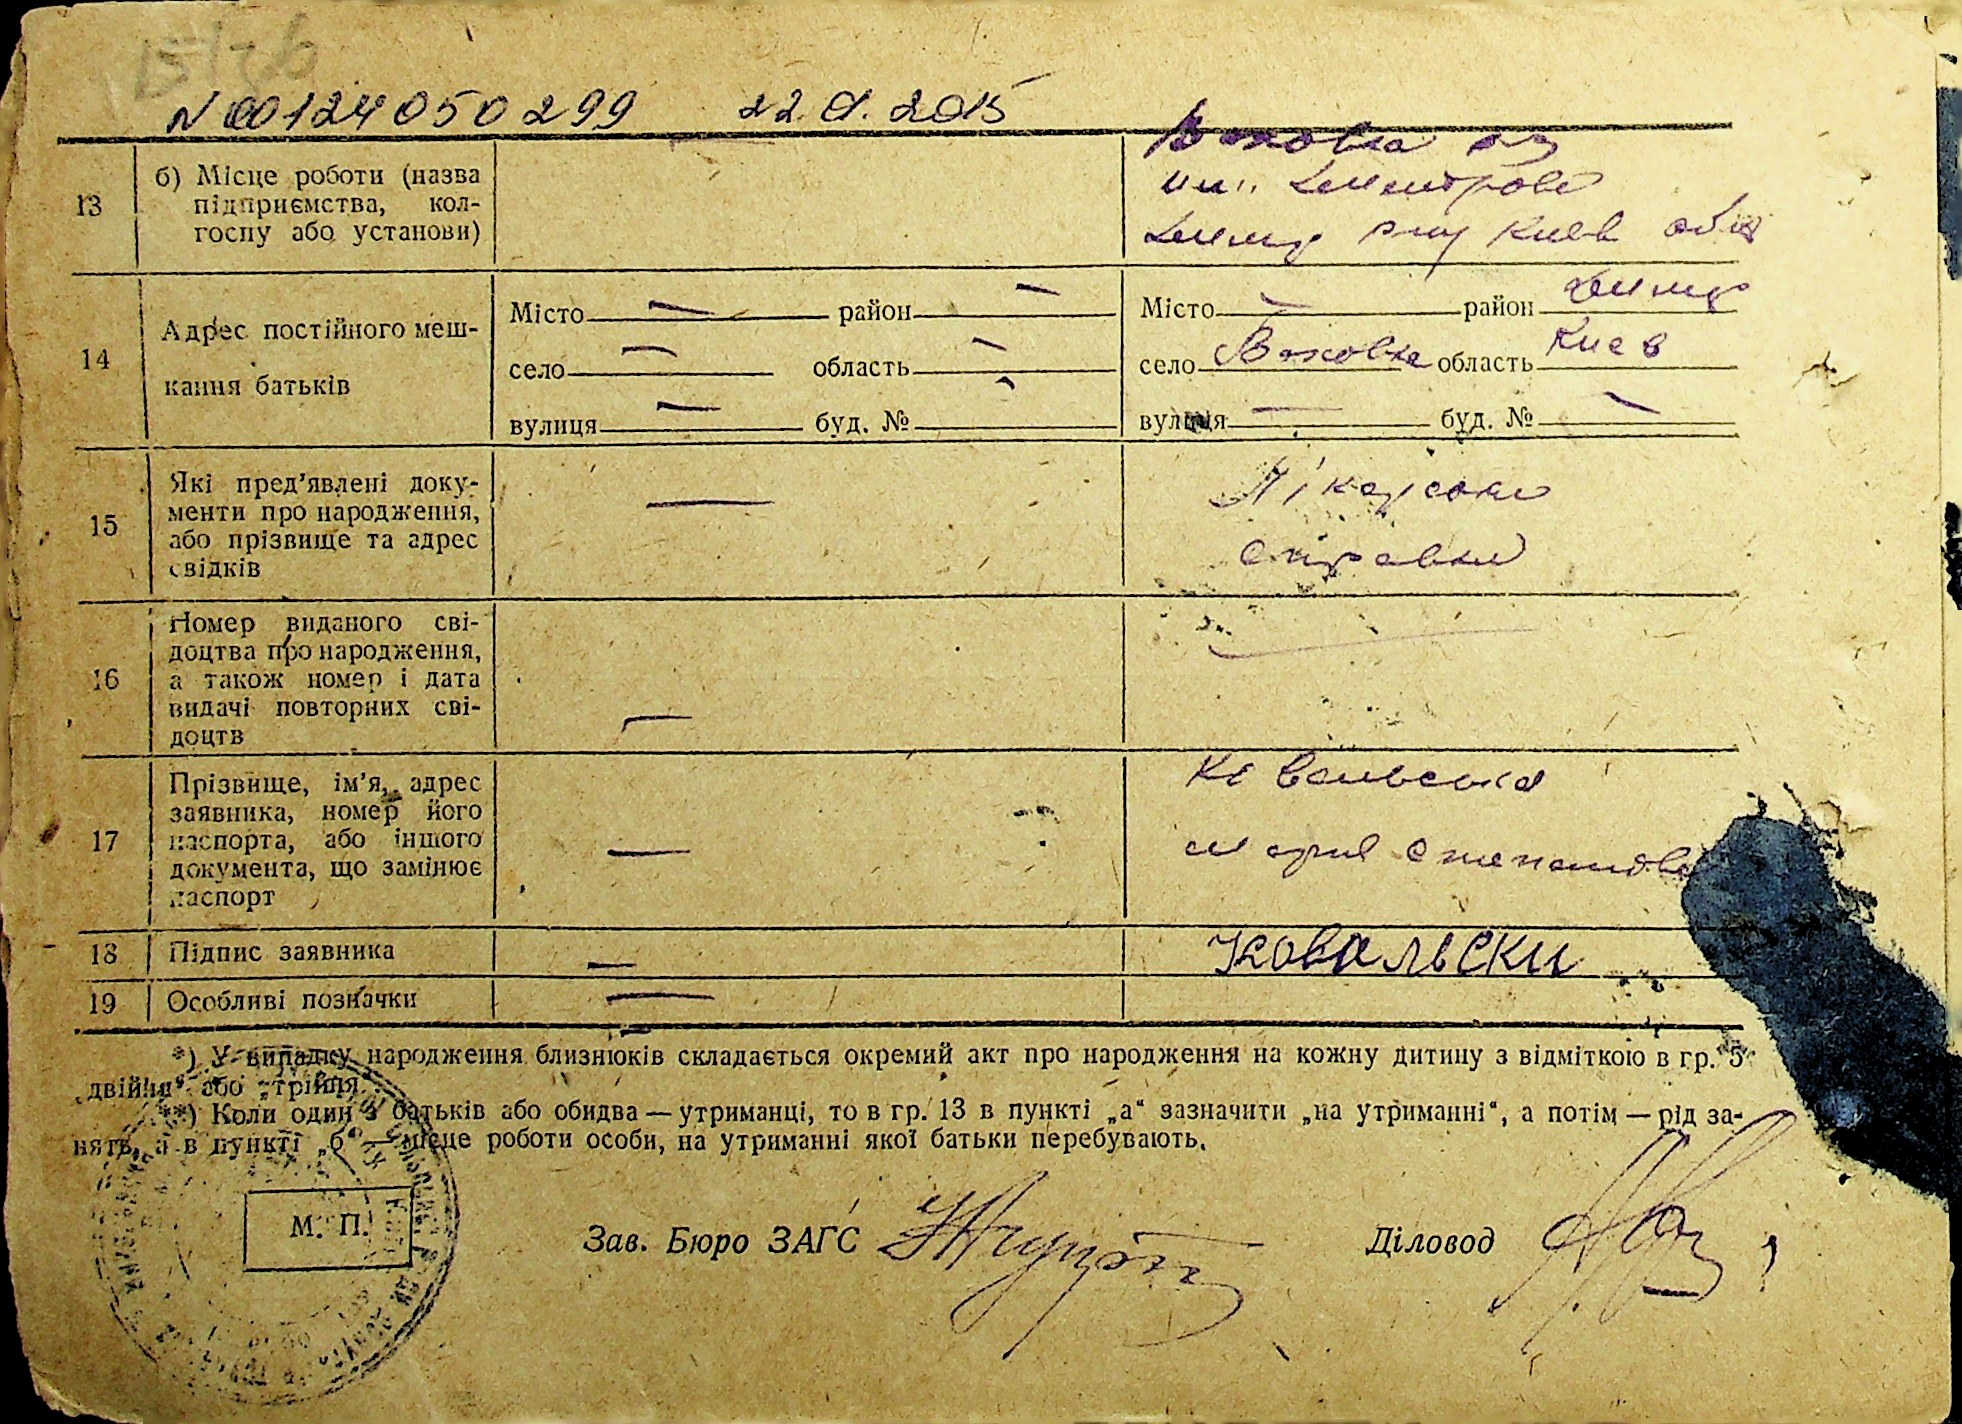 N 00124050299 22.01.2015
13
б) Місце роботи (назва
підприємства, кол-
госпу або установи)
им.
Киев обл
14
Адрес постійного меш-
кання батьків
Місто — район —
село — область —
вулиця — буд. № —
Місто — район
село область Киев
вулиця — буд. № —
15
Які пред'явлені доку-
менти про народження,
або прізвище та адрес
свідків
—
Лікарська
справка
16
Номер виданого сві-
доцтва про народження,
а також номер і дата
видачі повторних сві-
доцтв
—
17
Прізвище, ім'я, адрес
заявника, номер його
паспорта, або іншого
документа, що замінює
паспорт
—
Ковальська
Мария Степановна
18
Підпис заявника
—
Ковальски
19
Особливі позначки
—
*) У випадку народження близнюків складається окремий акт про народження на кожну дитину з відміткою в гр. 5
„двійня" або „трійня".
**) Коли один з батьків або обидва — утриманці, то в гр. 13 в пункті „а" зазначити „на утриманні", а потім — рід за-
нять, а в пункті „б" — місце роботи особи, на утриманні якої батьки перебувають.
М. П.
Зав. Бюро ЗАГС
Діловод